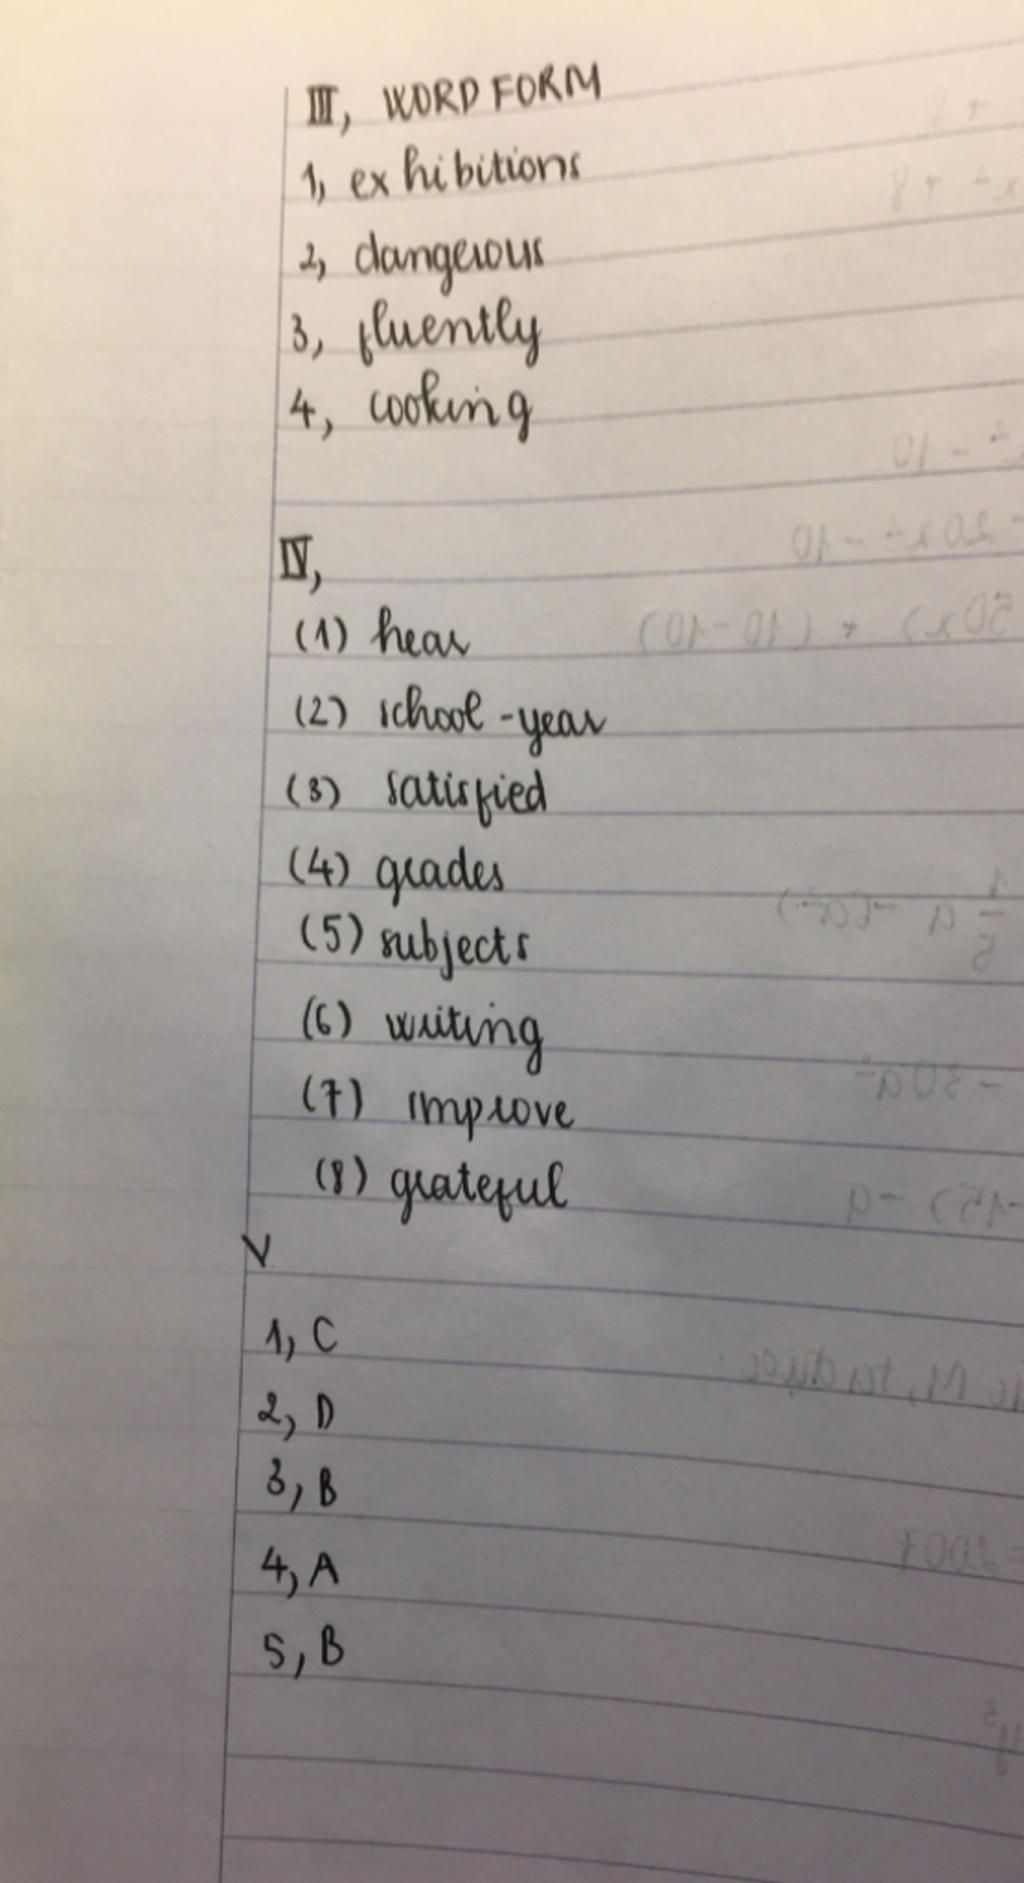 III, WORD FORM
1, exhibitions
2, dangerous
3, fluently
4, cooking
IV,
(1) hear
(2) school-year
(3) satisfied
(4) grades
(5) subjects
(6) writing
(7) improve
(8) grateful
V
1, C
2, D
3, B
4, A
5, B